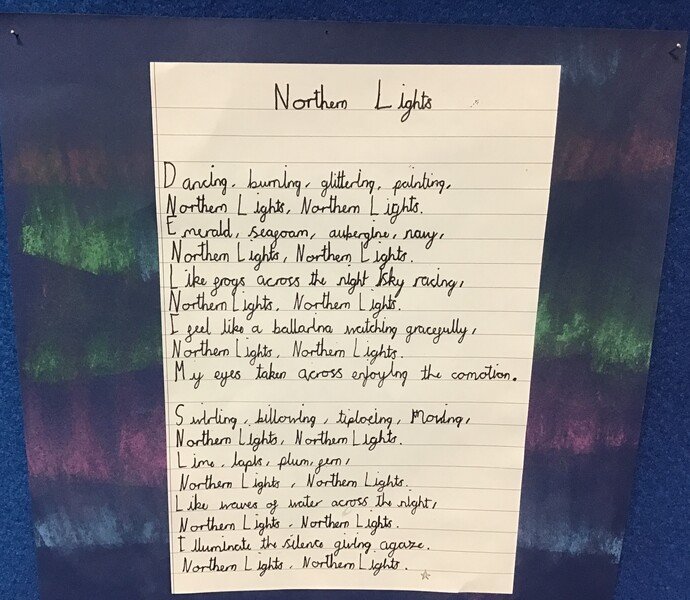 Northern Lights
Dancing, burning, glittering, painting,
Northern Lights, Northern Lights.
Emerald, seagoam, aubergine, navy,
Northern Lights, Northern Lights.
Like frogs across the night sky racing,
Northern Lights, Northern Lights.
I feel like a ballarina watching gracefully,
Northern Lights, Northern Lights.
My eyes taken across enjoying the comotion.
Swirling, billowing, tiptoeing, moving,
Northern Lights, Northern Lights.
Lime, lapis, plum, fern,
Northern Lights, Northern Lights.
Like waves of water across the night,
Northern Lights, Northern Lights.
I lluminate the silence giving agaze.
Northern Lights, Northern Lights.